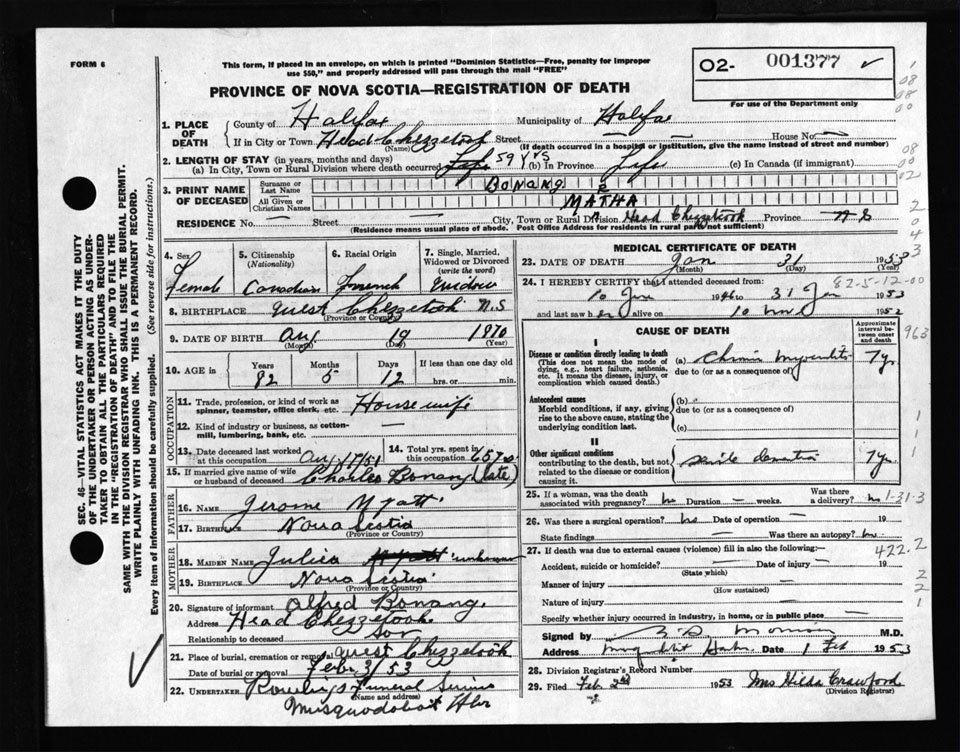 FORM 6
This form, if placed in an envelope, on which is printed "Dominion Statistics—Free, penalty for improper
use $50," and properly addressed will pass through the mail "FREE"
O2- 001377 ✓
For use of the Department only
PROVINCE OF NOVA SCOTIA—REGISTRATION OF DEATH
1. PLACE OF DEATH
County of Halifax Municipality of Halifax
If in City or Town Head Chezzetook Street — House No. —
(Name) (If death occurred in a hospital or institution, give the name instead of street and number)
2. LENGTH OF STAY (in years, months and days)
(a) In City, Town or Rural Division where death occurred 59 yrs (b) In Province Life (c) In Canada (if immigrant)
3. PRINT NAME OF DECEASED
Surname or Last Name BONANG
All Given or Christian Names MARTHA
RESIDENCE No. — Street — City, Town or Rural Division Head Chezzetcook Province N S
(Residence means usual place of abode. Post Office Address for residents in rural parts not sufficient)
4. Sex Female
5. Citizenship (Nationality) Canadian
6. Racial Origin French
7. Single, Married, Widowed or Divorced (write the word) Widow
8. BIRTHPLACE West Chezzetook N.S
(Province or Country)
9. DATE OF BIRTH Aug 19 1870
(Month) (Day) (Year)
10. AGE in Years 82 Months 5 Days 12 If less than one day old hrs. or min.
OCCUPATION
11. Trade, profession, or kind of work as spinner, teamster, office clerk, etc. House wife
12. Kind of industry or business, as cotton-mill, lumbering, bank, etc. —
13. Date deceased last worked at this occupation Aug /51
14. Total yrs. spent in this occupation
15. If married give name of wife or husband of deceased Charles Bonang (late)
FATHER
16. NAME Jerome Myatt
17. BIRTHPLACE Nova Scotia
(Province or Country)
MOTHER
18. MAIDEN NAME Julia unknown
19. BIRTHPLACE Nova Scotia
(Province or Country)
20. Signature of informant Alfred Bonang
Address Head Chezzetook
Relationship to deceased Son
21. Place of burial, cremation or removal West Chezzetook
Date of burial or removal Feb 3/53
22. UNDERTAKER Funeral Service
(Name and address)
Musquodoboit Hbr
MEDICAL CERTIFICATE OF DEATH
23. DATE OF DEATH Jan 31 1953
(Month) (Day) (Year)
82-5-12-00
24. I HEREBY CERTIFY that I attended deceased from:
1946 to 31 Jan 1953
and last saw her alive on 10 Nov 1952
CAUSE OF DEATH
Approximate interval between onset and death
I
Disease or condition directly leading to death (a) Chronic myocarditis 7 yr
(This does not mean the mode of dying, e.g., heart failure, asthenia, etc. It means the disease, injury, or complication which caused death.) due to (or as a consequence of)
Antecedent causes (b)
Morbid conditions, if any, giving rise to the above cause, stating the underlying condition last. due to (or as a consequence of)
(c)
II
Other significant conditions contributing to the death, but not related to the disease or condition causing it. senile dementia 7 yr
25. If a woman, was the death associated with pregnancy? no Duration — weeks. Was there a delivery? no
1-31-3
26. Was there a surgical operation? Date of operation — 19
State findings — Was there an autopsy? no
422.2
27. If death was due to external causes (violence) fill in also the following:—
Accident, suicide or homicide? Date of injury — 19
(State which)
Manner of injury
(How sustained)
Nature of injury
Specify whether injury occurred in industry, in home, or in public place —
Signed by M.D.
Address Date 1 Feb 1953
28. Division Registrar's Record Number
29. Filed Feb 2nd 1953 Mrs Hilda Crawford
(Division Registrar)
963
SEC. 46—VITAL STATISTICS ACT MAKES IT THE DUTY
OF THE UNDERTAKER OR PERSON ACTING AS UNDER-
TAKER TO OBTAIN ALL THE PARTICULARS REQUIRED
IN THE "REGISTRATION OF DEATH" AND TO FILE THE
SAME WITH THE DIVISION REGISTRAR WHO SHALL ISSUE THE BURIAL PERMIT.
WRITE PLAINLY WITH UNFADING INK. THIS IS A PERMANENT RECORD.
Every item of information should be carefully supplied. (See reverse side for instructions.)